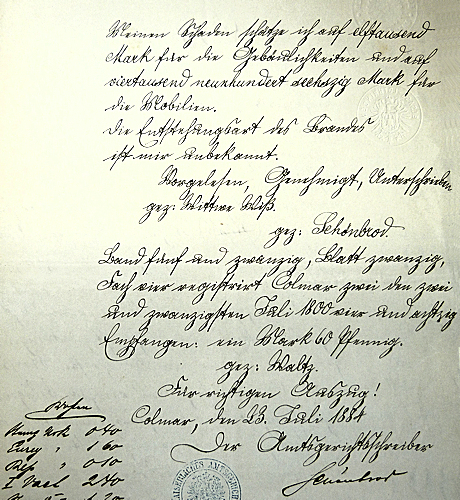 Meinen Schaden schätze ich auf elftausend
Mark für die Gebäulichkeiten und auf
viertausend neunhundert sechszig Mark für
die Mobilien.
Die Entstehungsart des Brandes
ist mir unbekannt.
Vorgelesen, Genehmigt, Unterschrieben
gez: Wittwe Wiß.
gez: Schönbrod.
Band fünf und zwanzig, Blatt zwanzig,
Fach vier registrirt Colmar zwei den zwei
und zwanzigsten Juli 1800 vier und achtzig
Empfangen: ein Mark 60 Pfennig.
gez: Waltz.
Für richtigen Auszug!
Colmar, den 23. Juli 1884
Der Amtsgerichtsschreiber
Kosten
0 40
1 60
0 10
2 40
KAISERLICHES AMTSGERICHT